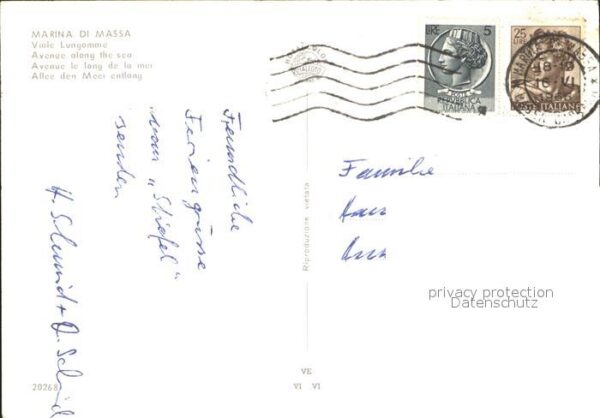 MARINA DI MASSA
Viale Lungomare
Avenue along the sea
Avenue le long de la mer
Allee den Meer entlang
LIRE 5
REPUBBLICA
ITALIANA
25
LIRE
POSTE ITALIANE
Freundliche
Feriengrüsse
vom „Stiefel“
senden
H. Schmid + O. Schmid
Riproduzione vietata
Familie
privacy protection
Datenschutz
20268
VE
VI VI